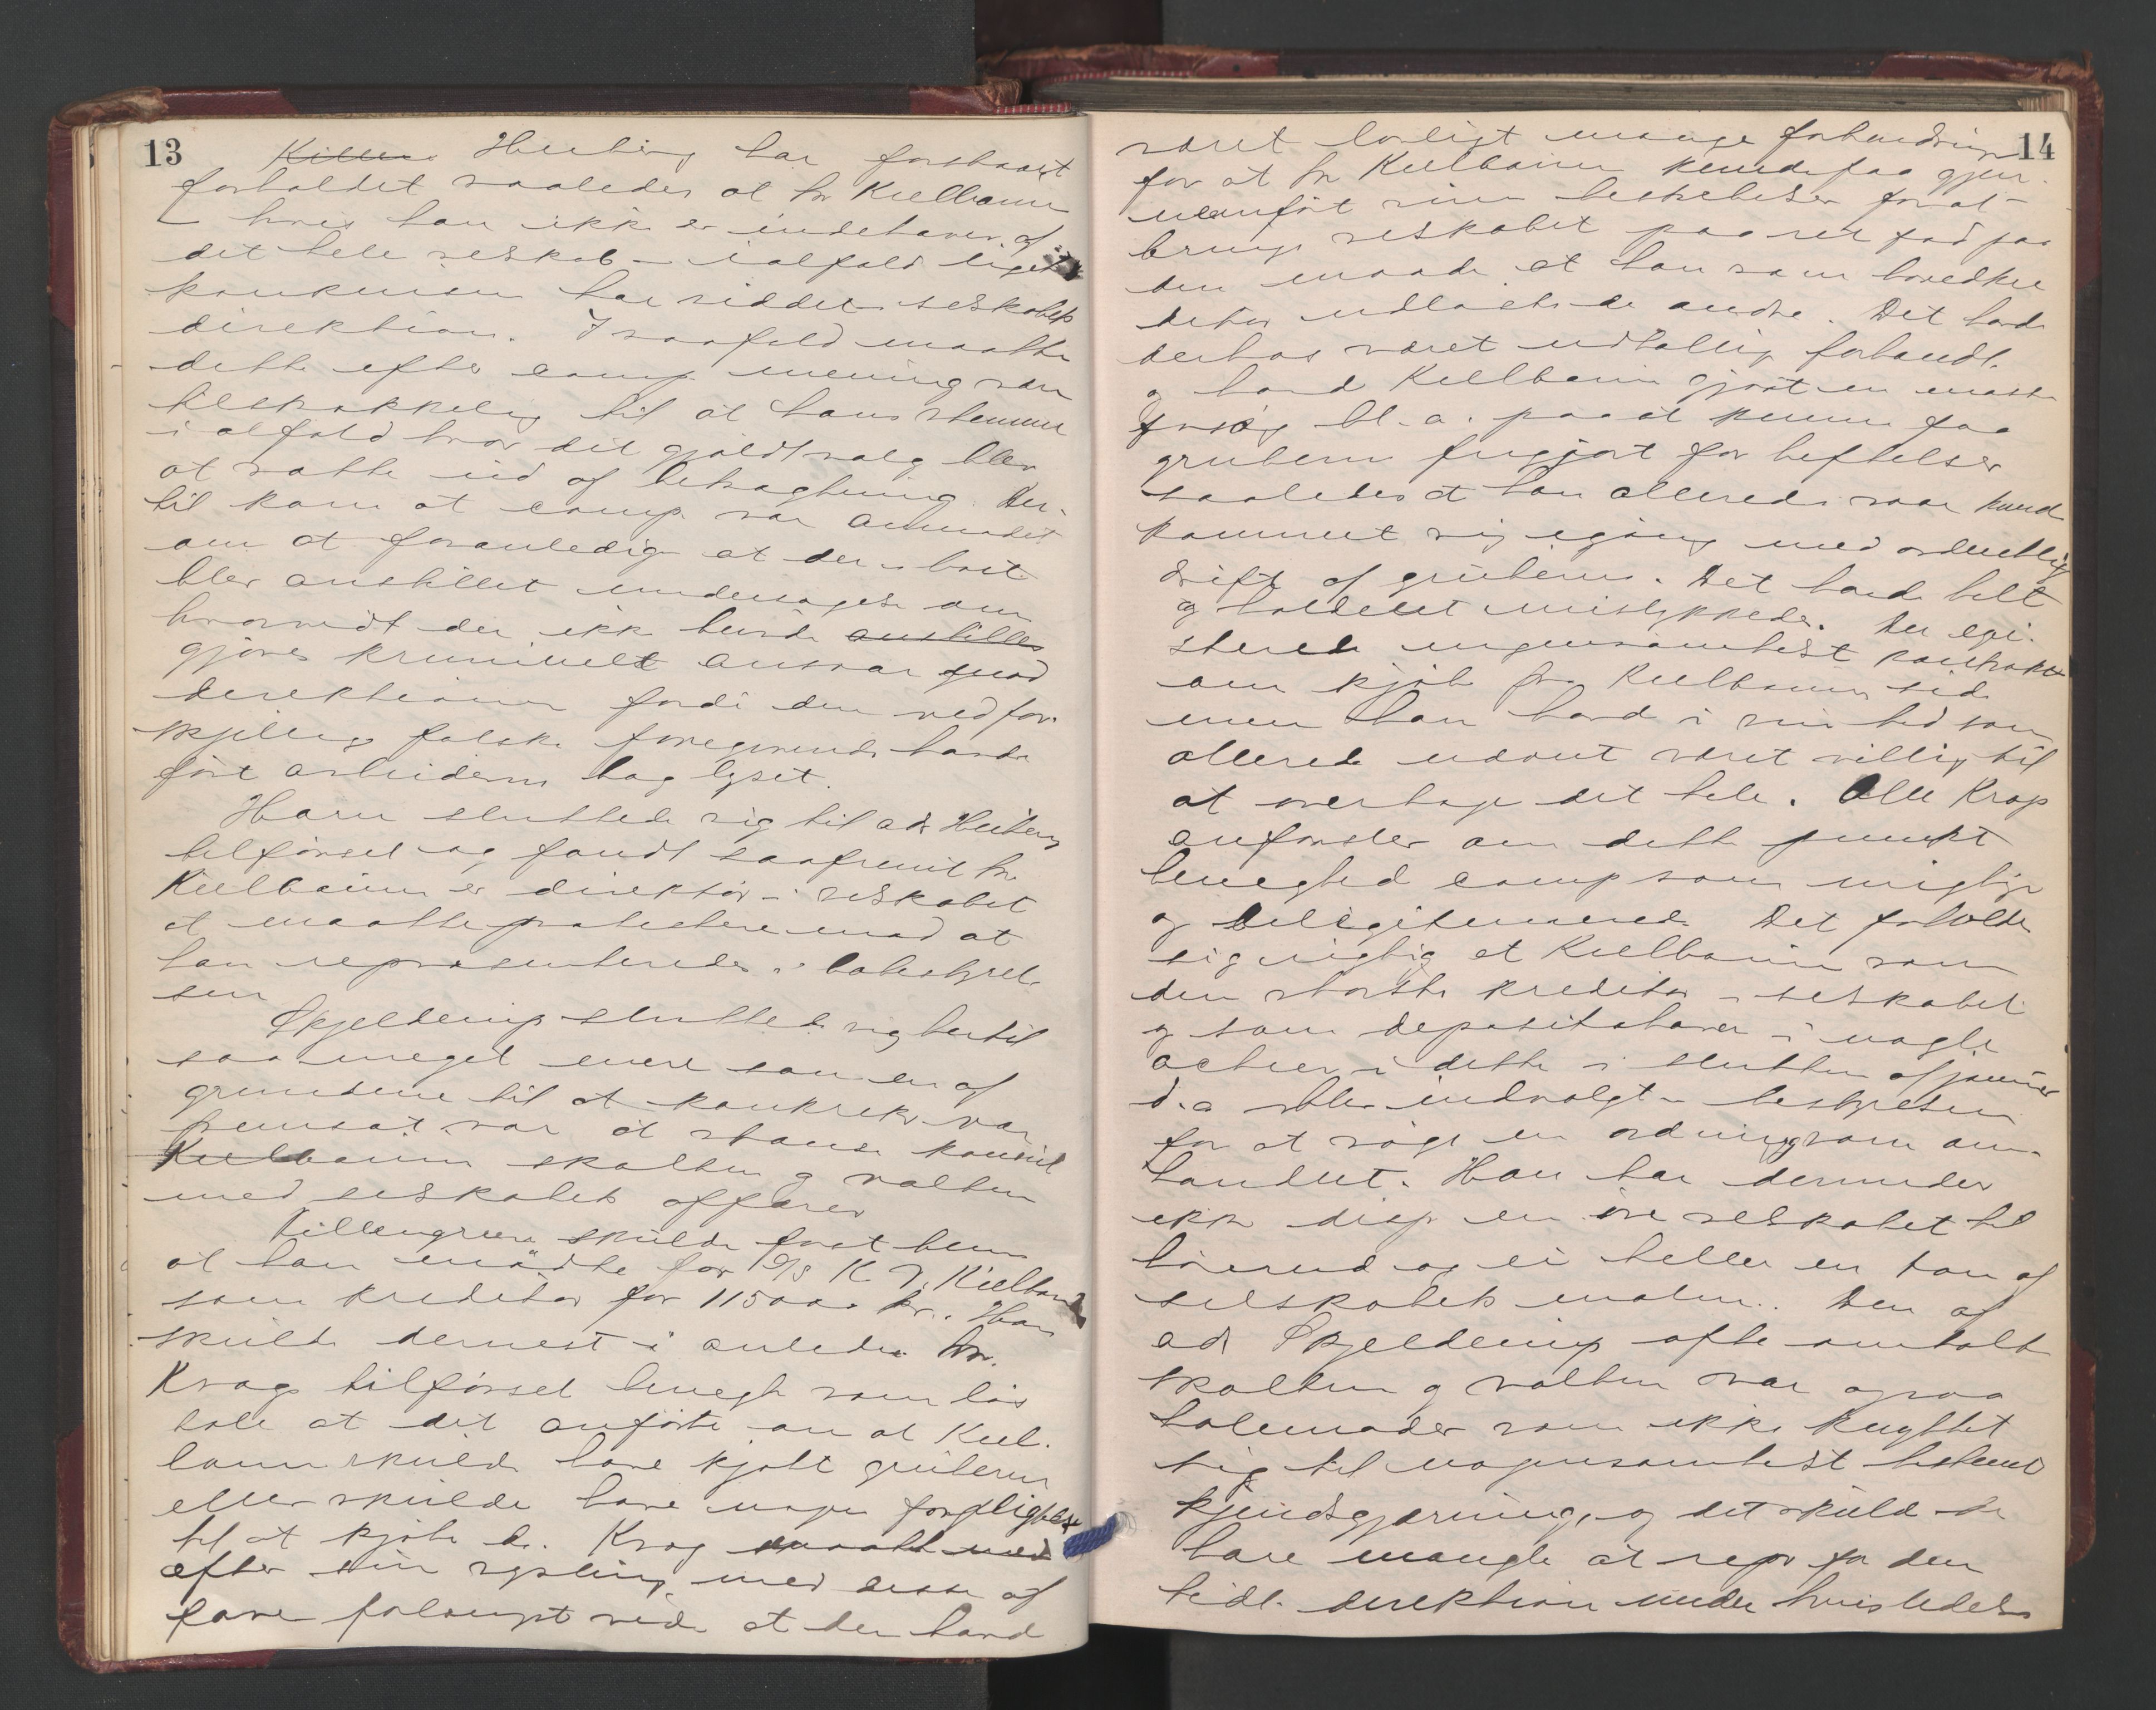 13
Killen Heiberg har forstaaet
forholdet saaledes at hr Kielbaum
- hvis han ikke er indehaver af
det hele selskab - ialfald siger
konkursen har siddet i selskabets
direktion. I saafald maatte
dette efter comp. mening være
tilstrækkelig til at hans stemme
ialfald hvor det gjældt valg blev
at sætte ud af betragtning. Der-
til kom at comp. var anmodet
om at foranledige at der i boet
blev anstillet undersøgelse om
hvorvidt der ikke burde anstilles
gjøres kriminelt ansvar mod
direktionen fordi den ved for-
skjellige falske foregivende havde
ført arbeiderne bag lyset.
Horn sluttede sig til adv Heibergs
tilførsel og fandt saafremt hr.
Kielbaum er direktør i selskabet
at maatte protestere mod at
han repræsenteredes i bobestyrel-
sen
Skjelderup sluttede sig hertil
saa meget mere som en af
grundene til at konkurs var
fremsat var at standse konsul
Kielbaum skalten og valten
med selskabets affærer
Killengreen skulde først bem.
at han mødte for A/S K. J. Kielbaum
som kreditor for 115000 kr. Han
skulde dernest i anledn hr.
Krags tilførsel benegte som løs
tale at det anførte om at Kiel-
baum skulde have kjøbt gruberne
eller skulde have nogen forpligtelse
til at kjøbe de. Krog maatte med
efter sin sysling med disse af
farer fuldkomment vide at der havde
14
været lovligt mange forhindringer
for at hr Kielbaum kunde faa gjen-
nemført sine bestræbelser for at
bringe selskabet paa ret fod paa
den maade at han som hovedkre
ditor udløste de andre. Det havde
derhos været udtallig forhandl.
og havde Kielbaum gjort en masse
forsøg bl. a. paa at kunne faa
gruberne frigjort for heftelser
saaledes at han allerede saa kunde
kommet sig igang med ordentlig
drift af gruberne. Det havde helt
og holdent mislykkedes. Der exi-
sterede ingensomhelst kontrakt
om kjøb fra Kielbaums side
men han havde i sin tid som
allerede nævnt været villig til
at overtage det hele. Alle Krags
anførsler om dette punkt
benegted comp som urigtige
og ulegitimerede. Det forholdte
sig rigtig at Kielbaum som
den største kreditor i selskabet
og som depositohaver i nogle
actier i dette i slutten af januar
d.a. blev indvalgt i bestyrelsen
for at søge en ordning som om-
handlet. Han har derunder
ikke disp en øre selskabet til
hørende og ei heller en ton af
selskabets malm. Den af
adv Skjelderup ofte omtalte
skalten og valten var ogsaa
talemaader som ikke knyttet
sig til nogensomhelst bestemt
kjendsgjerning, og det skulde
bare mangle at repr for den
tidl. direktion under hvis ledelse